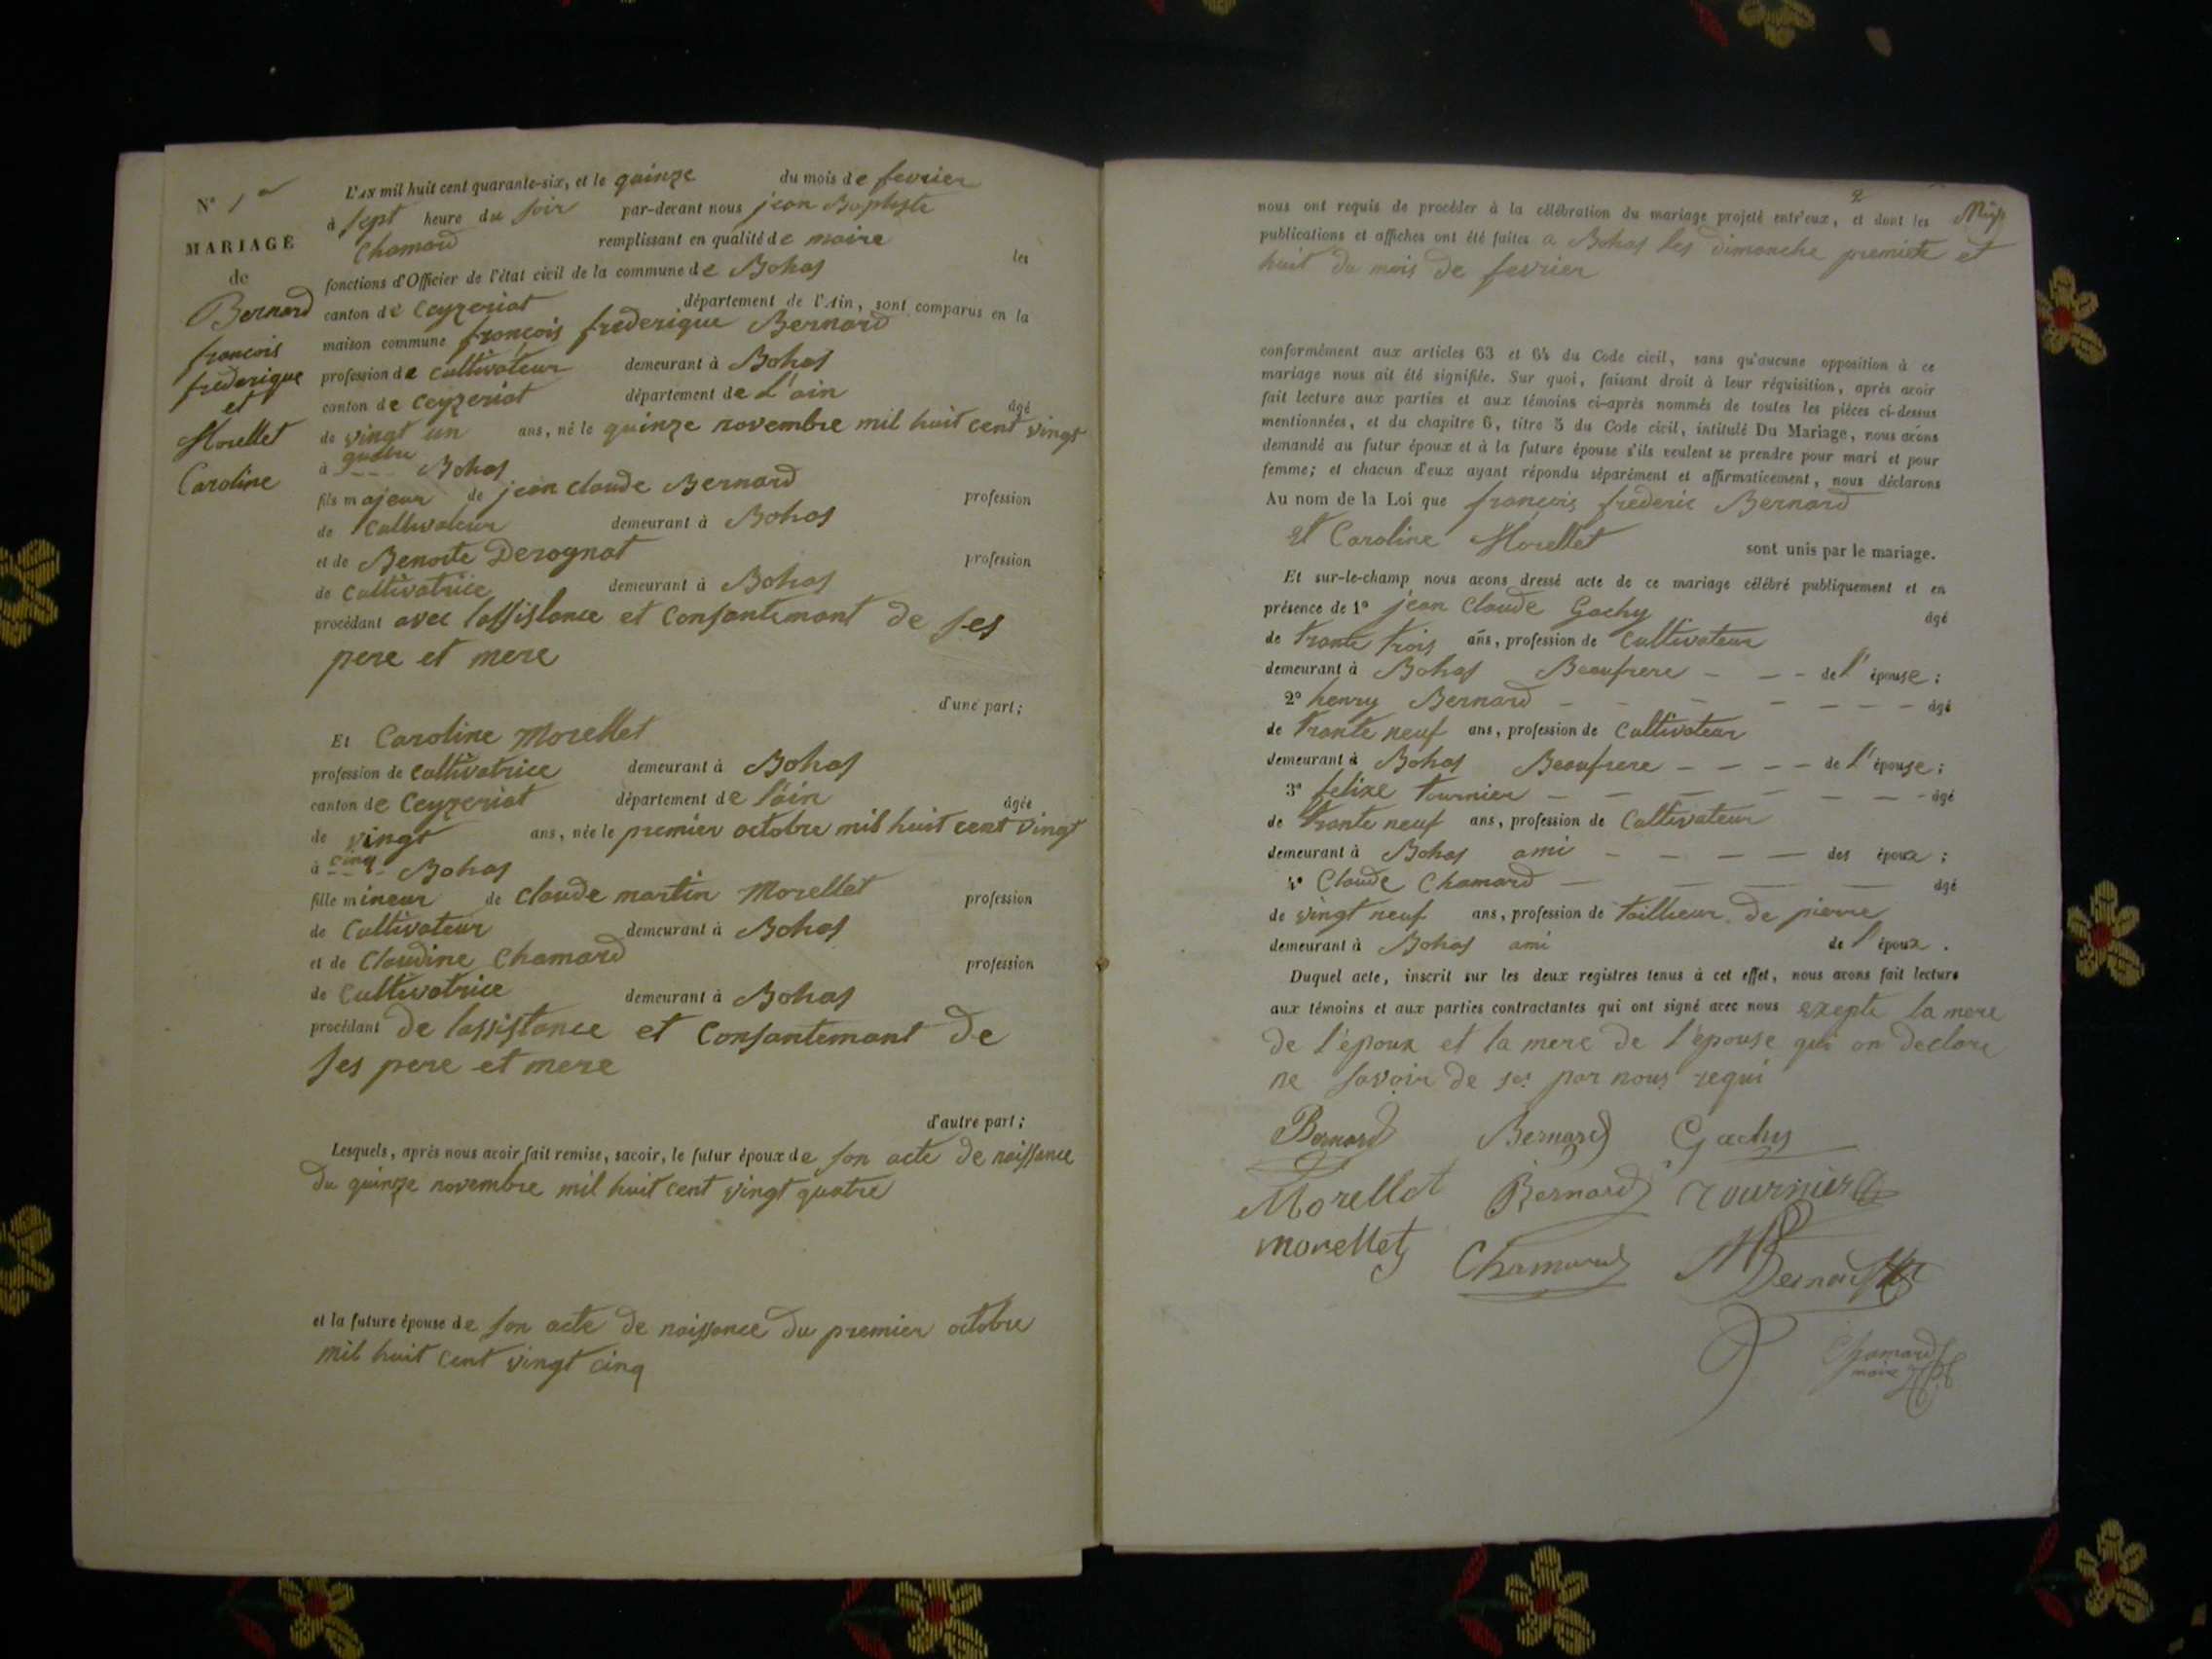 N° 1er
MARIAGE
de
Bernard
françois
frederique
et
Morellet
Caroline
L'AN mil huit cent quarante-six, et le quinze du mois de fevrier
à sept heure du soir par-devant nous jean Baptiste
Chamard remplissant en qualité de maire les
fonctions d'Officier de l'état civil de la commune de Bohas
canton de Ceyzeriat département de l'Ain, sont comparus en la
maison commune françois frederique Bernard
profession de cultivateur demeurant à Bohas
canton de Ceyzeriat département de L'ain âgé
de vingt un ans, né le quinze novembre mil huit cent vingt
quatre
à Bohas
fils majeur de jean claude Bernard profession
de Cultivateur demeurant à Bohas
et de Benoite Derognat profession
de Cultivatrice demeurant à Bohas
procédant avec lassistance et Consantemant de ses
pere et mere
d'une part;
Et Caroline Morellet
profession de cultivatrice demeurant à Bohas
canton de Ceyzeriat département de l'ain âgée
de vingt ans, née le premier octobre mil huit cent vingt
cinq
à Bohas
fille mineur de Claude martin Morellet profession
de Cultivateur demeurant à Bohas
et de Claudine Chamard profession
de Cultivatrice demeurant à Bohas
procédant de lassistance et Consantemant de
ses pere et mere
d'autre part;
Lesquels, après nous avoir fait remise, savoir, le futur époux de son acte de naissance
du quinze novembre mil huit cent vingt quatre
et la future épouse de son acte de naissance du premier octobre
mil huit cent vingt cinq
2
nous ont requis de procéder à la célébration du mariage projeté entr'eux, et dont les
publications et affiches ont été faites a Bohas les dimanche premiere et
huit du mois de fevrier
conformément aux articles 63 et 64 du Code civil, sans qu'aucune opposition à ce
mariage nous ait été signifiée. Sur quoi, faisant droit à leur réquisition, après avoir
fait lecture aux parties et aux témoins ci-après nommés de toutes les pièces ci-dessus
mentionnées, et du chapitre 6, titre 5 du Code civil, intitulé Du Mariage, nous avons
demandé au futur époux et à la future épouse s'ils veulent se prendre pour mari et pour
femme; et chacun d'eux ayant répondu séparément et affirmativement, nous déclarons
Au nom de la Loi que françois frederic Bernard
et Caroline Morellet sont unis par le mariage.
Et sur-le-champ nous avons dressé acte de ce mariage célébré publiquement et en
présence de 1° jean Claude Gachy âgé
de trante trois ans, profession de Cultivateur
demeurant à Bohas Beaufrere - - - de l'épouse;
2° henry Bernard - - - - - - - âgé
de trante neuf ans, profession de Cultivateur
demeurant à Bohas Beaufrere - - - - de l'épouse;
3° felixe tournier - - - - - - - âgé
de trante neuf ans, profession de Cultivateur
demeurant à Bohas ami - - - - des époux;
4° Claude Chamard - - - - âgé
de vingt neuf ans, profession de tailleur de pierre
demeurant à Bohas ami de l'époux.
Duquel acte, inscrit sur les deux registres tenus à cet effet, nous avons fait lecture
aux témoins et aux parties contractantes qui ont signé avec nous exepte la mere
de l'époux et la mere de l'épouse qui on declare
ne savoir de se par nous requi
Bernard Bernard Gachy
Morellet Bernard Tournier
morellet Chamard Bernard
Chamard
maire